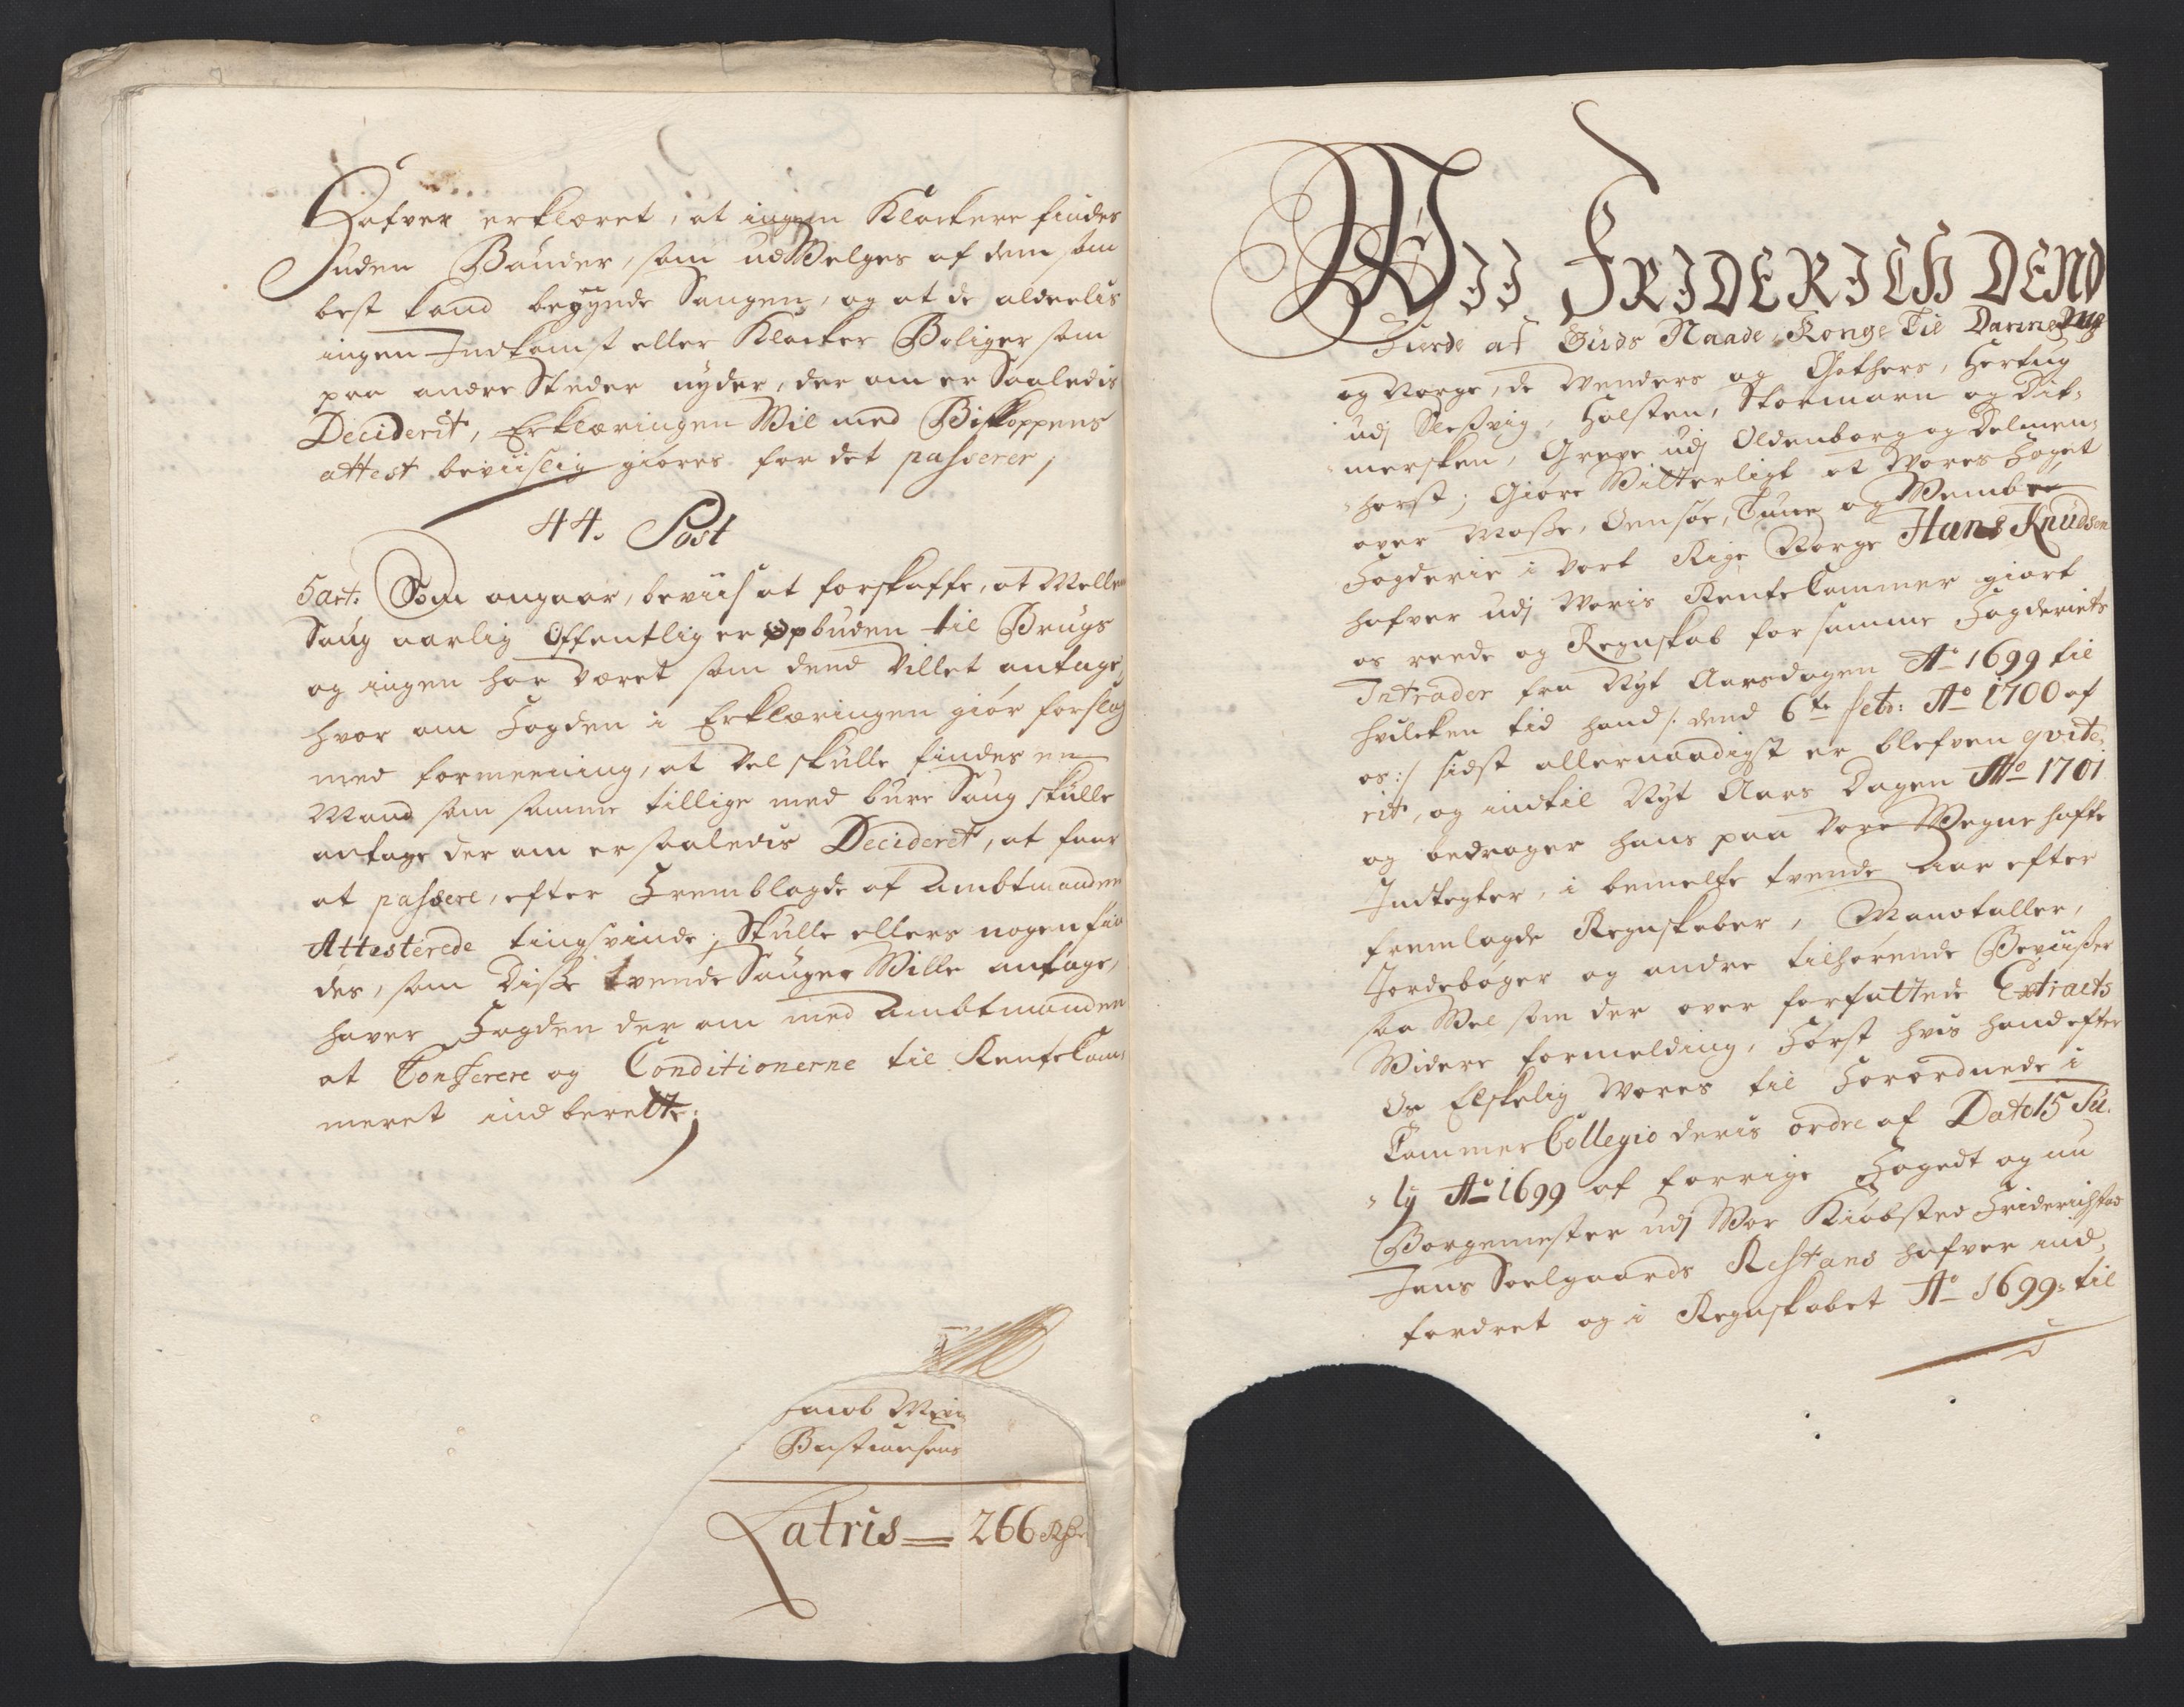 Hafver erklæret, at ingen Klockere findes
uden Bønder, som udWelges af dem som
best kand begÿnde Sangen, og at de aldeelis
ingen Indkomst eller Klocker Boliger som
paa andre Steder nyder, der om er Saaledis
Deciderit, Erklæringen Wil med Biskoppens
attest beviislig giøres for det passerer;
44. Post
5 art. Som angaar, beviis at forskaffe, at Melle
Saug aarlig Offentlig er opbuden til Brugs
og ingen har været som dend villet antage,
hvor om Fogden i Erklæringen giør forslag
med formeening, at vel skulle findes en
Mand som samme tillige med bure Saug skulle
antage der om er saaledis Decideret, at faar
at passere, efter Fremblagde af Ambtmanden
Attesterede tingsvinde; Skulle ellers nogen fin
des, som Disse tvende Sauger Wille antage,
haver Fogden der om med Ambtmanden
at Conferere og Conditionerne til Rentekam
meret ind berette;
Jacob
Bastiansens
Latris = 266 Rdr
WII FRIDERICH DEND
Fierde af Guds Naade, Konge Til Danmarck
og Norge, de Wenders og Gothers, Hertug
udj Slesvig, Holsten, Stormarn og Dit-
mersken, Greve udj Oldenborg og Delmen-
horst; Giøre Witterligt at Wores Foget
over Mosse, Onsøe, Tune og Wembre
Fogderie i vort Rige Norge Hans Knudsen
hafver udj Woris RenteCammer giort
os reede og Regnskab for samme Fogderiets
Intrader fra Nyt Aarsdagen Ao 1699 til
hvilcken tid hand /: dend 6te Febr: Ao 1700 af
os :/ sidst allernaadigst er blefven qvite-
rit, og indtil Nyt Aars Dagen Ao 1701
og bedrager hans paa vore Wegne hafte
Indtegter, i bemelte tvende Aar efter
fremlagde Regnskaber, Mandtaller,
Jordebøger og andre tilhørende Beviisser
saa Wel som der over forfattede Extracts
Widere formelding, Først hvis hand efter
Os Elskelig Wores til Forordnede i
Cammer Collegio deris ordre af Dato 15 Ju-
ly Ao 1699 af forrige Fogedt og nu
Borgemester udj Wor Kiøbsted Friderichstad
Jens Soelgaards Restans hafver ind-
fordret og i Regnskabet Ao 1699 til